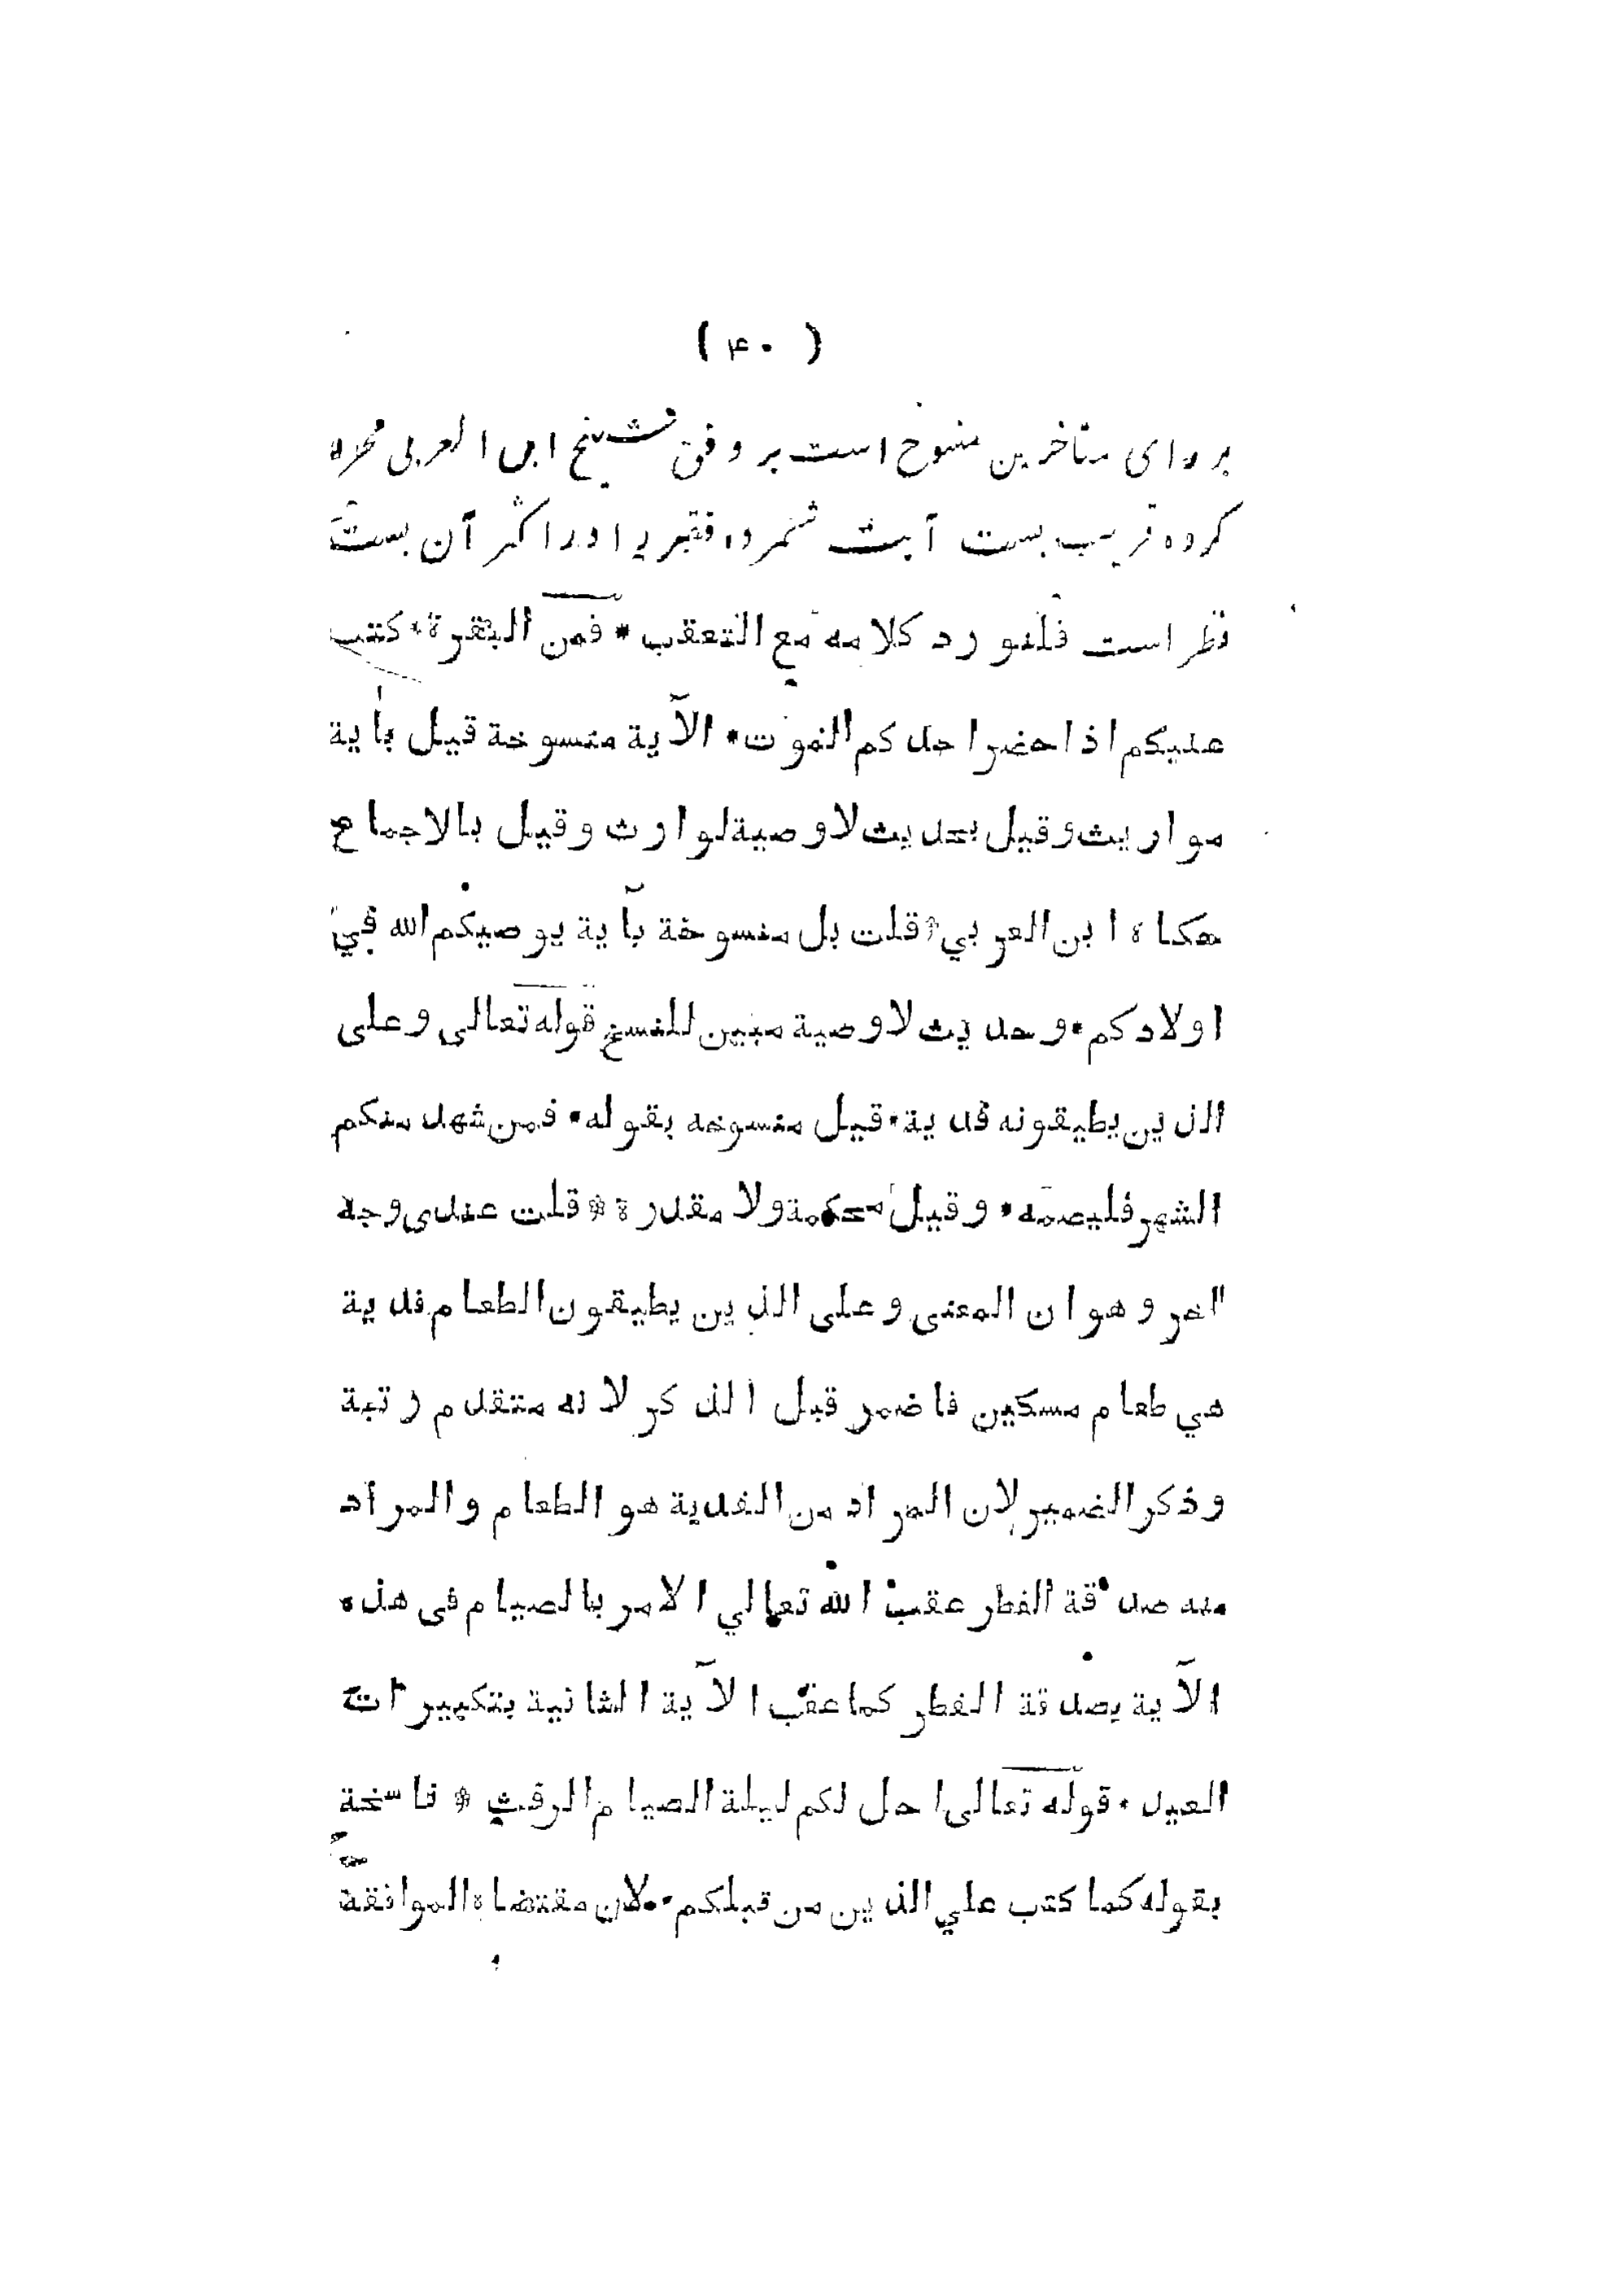 ( ۴۰ )
بر رای متاخرین منسوخ است بر وفق شیخ ابن العربی محرره
کرده قریب بست آیت شمرده فقیر را در اکثر آن بست
نظر است فلنورد كلامه مع التعقب * فمن البقرة * كتب
عليكم اذا حضر احدكم الموت * الآية منسوخة قيل بآية
مواريث وقيل بحديث لا وصية لوارث وقيل بالاجماع
حكاه ابن العربي * قلت بل منسوخة بآية يوصيكم الله في
اولادكم * وحديث لا وصية مبين للنسخ قوله تعالى وعلى
الذين يطيقونه فدية * قيل منسوخه بقوله * فمن شهد منكم
الشهر فليصمه * وقيل محكمة ولا مقدرة * قلت عندى وجه
اخر وهو ان المعنى وعلى الذين يطيقون الطعام فدية
هي طعام مسكين فاضمر قبل الذكر لانه متقدم رتبة
وذكر الضمير لان المراد من الفدية هو الطعام والمراد
منه صدقة الفطر عقب الله تعالي الامر بالصيام فى هذه
الآية بصدقة الفطر كما عقب الآية الثانية بتكبيرات
العيد * قوله تعالى احل لكم ليلة الصيام الرفث * ناسخة
بقوله كما كتب علي الذين من قبلكم * لان مقتضاه الموافقة